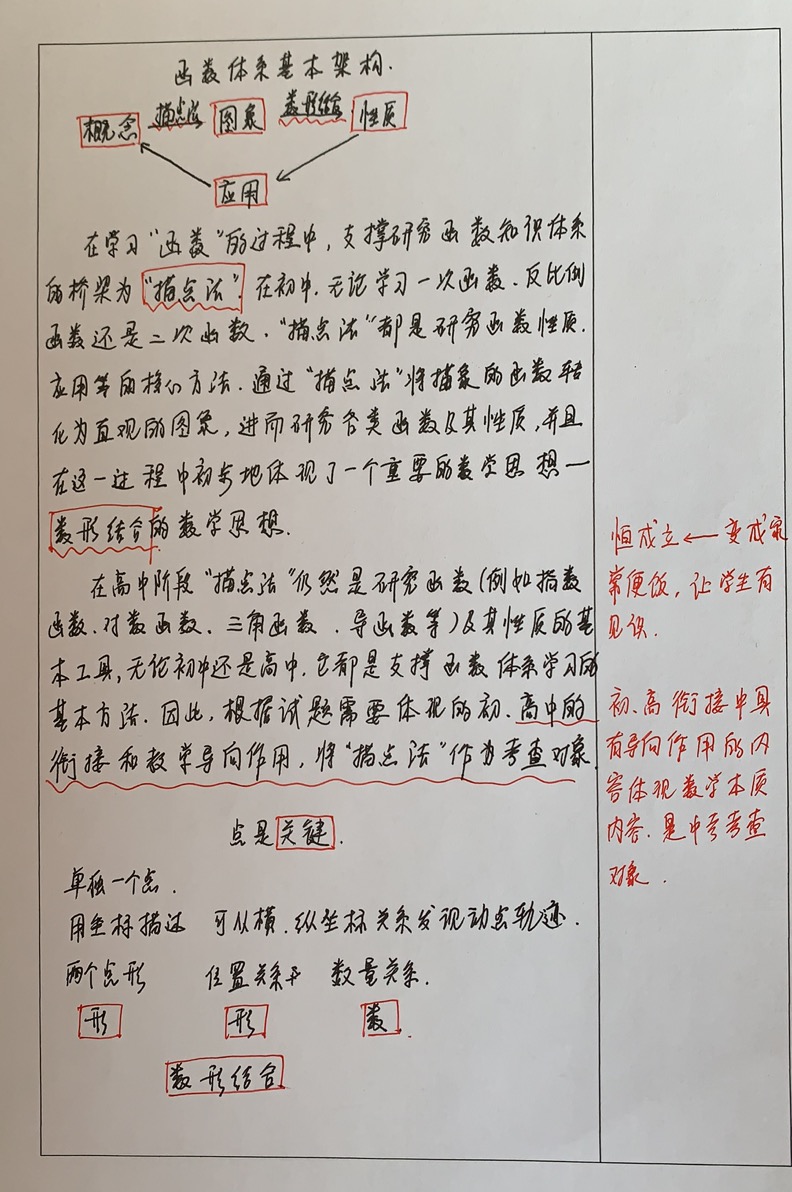 函数体系基本架构.
概念 描点法 图象 数形结合 性质
应用
在学习“函数”的过程中,支撑研究函数知识体系
的桥梁为“描点法”.在初中,无论学习一次函数.反比例
函数还是二次函数.“描点法”都是研究函数性质.
应用等的核心方法.通过“描点法”将抽象的函数转
化为直观的图象,进而研究各类函数及其性质,并且
在这一过程中初步地体现了一个重要的数学思想—
数形结合的数学思想.
在高中阶段“描点法”仍然是研究函数(例如指数
函数、对数函数、三角函数、导函数等)及其性质的基
本工具,无论初中还是高中.它都是支撑函数体系学习的
基本方法.因此,根据试题需要体现的初、高中的
衔接和教学导向作用,将“描点法”作为考查对象.
点是关键.
单独一个点.
用坐标描述 可从横、纵坐标关系发现动点轨迹.
两个点形 位置关系 数量关系.
形 形 数
数形结合
恒成立←变成家
常便饭,让学生有
见识.
初、高衔接中具
有导向作用的内
容体现数学本质
内容.是中考考查
对象.